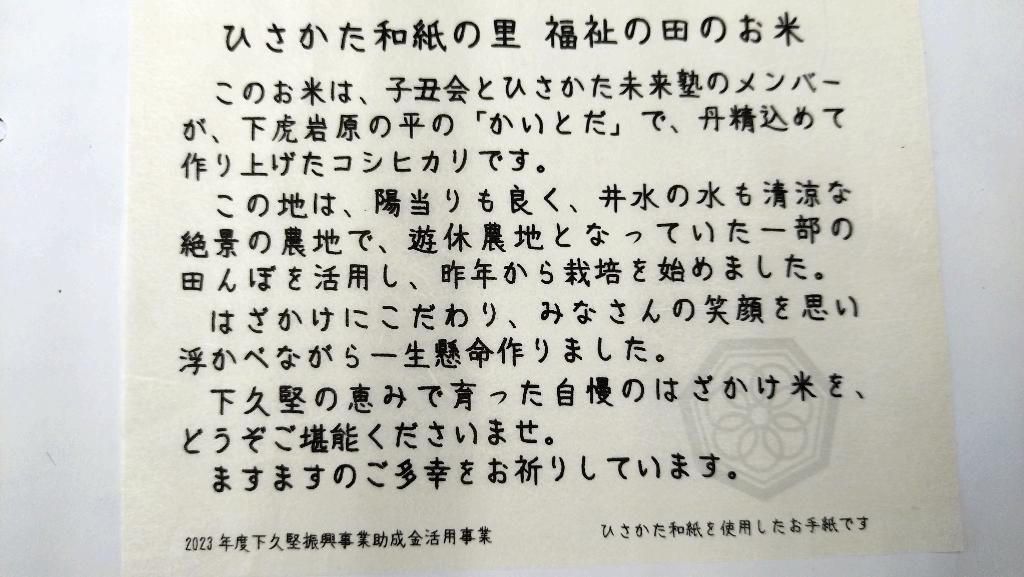 ひさかた和紙の里 福祉の田のお米
このお米は、子丑会とひさかた未来塾のメンバー
が、下虎岩原の平の「かいとだ」で、丹精込めて
作り上げたコシヒカリです。
この地は、陽当りも良く、井水の水も清涼な
絶景の農地で、遊休農地となっていた一部の
田んぼを活用し、昨年から栽培を始めました。
はざかけにこだわり、みなさんの笑顔を思い
浮かべながら一生懸命作りました。
下久堅の恵みで育った自慢のはざかけ米を、
どうぞご堪能くださいませ。
ますますのご多幸をお祈りしています。
2023年度下久堅振興事業助成金活用事業
ひさかた和紙を使用したお手紙です